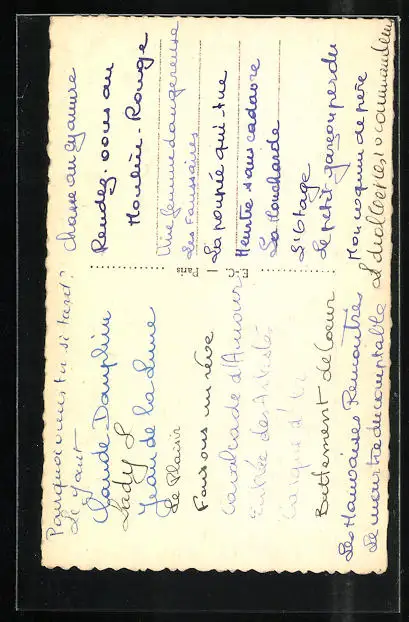 Pourquoi viens-tu si tard?
Le Gant
Claude Dauphin
Lady L
Jean de la Lune
Le Plaisir
Faisons un rêve
Cavalcade d'Amour
Entrée des Artistes
Casque d'Or
Battement de Coeur
Les Mauvaises Rencontres
Le meurtre du comptable
E.C. — Paris
Chasse au cyanure
Rendez-vous au
Moulin-Rouge
Une femme dangereuse
Les faussaires
La poupée qui tue
Meurtre sans cadavre
La Moucharde
L'Otage
Le petit garçon perdu
Mon coquin de père